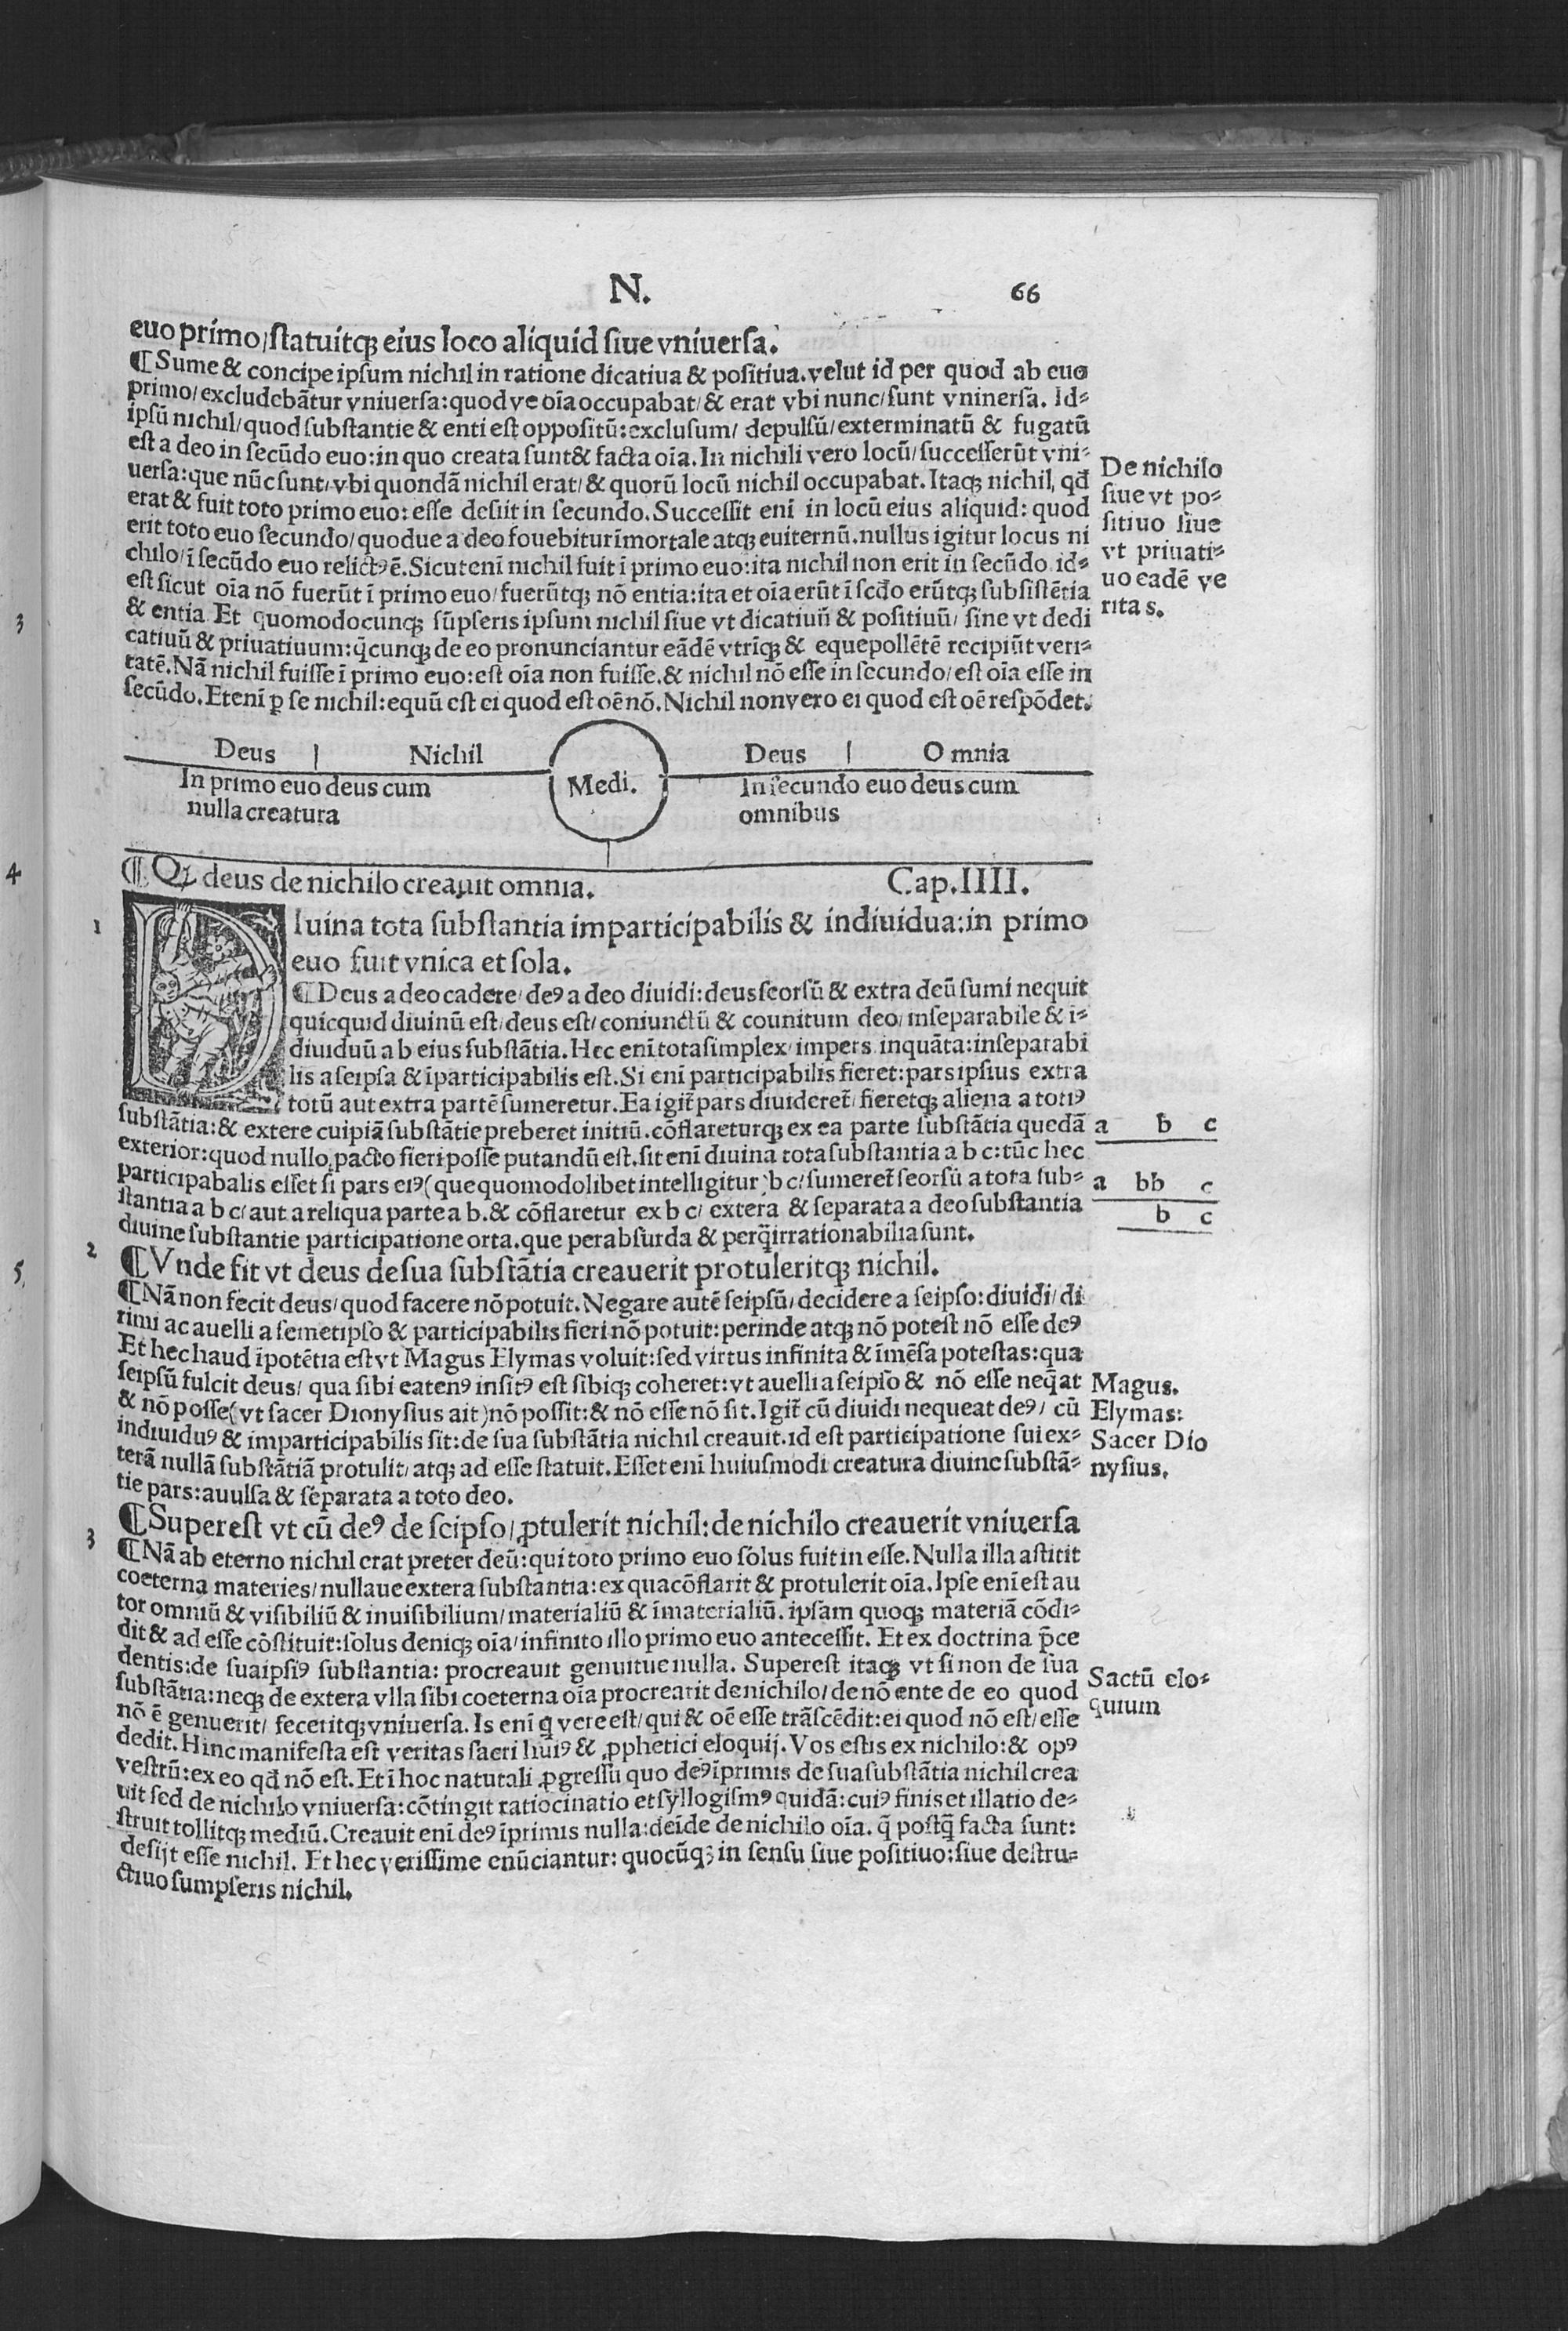 N.
66
euo primo/statuitqȝ eius loco aliquid siue vniuersa.
¶Sume & concipe ipsum nichil in ratione dicatiua & positiua.velut id per quod ab euo
primo/excludebātur vniuersa:quod ve oīa occupabat/& erat vbi nunc/sunt vninersa. Id⸗
ipsū nichil/quod substantie & enti est oppositū:exclusum/ depulsū/exterminatū & fugatū
est a deo in secūdo euo:in quo creata sunt& facta oīa.In nichili vero locū/successerūt vni⸗
uersa:que nūc sunt/vbi quondā nichil erat/& quorū locū nichil occupabat.Itaqȝ nichil, qd̄
erat & fuit toto primo euo:esse desiit in secundo.Successit enī in locū eius aliquid: quod
erit toto euo secundo/quodue a deo fouebiturīmortale atqȝ euiternū.nullus igitur locus ni
chilo/ī secūdo euo relictꝰē.Sicut enī nichil fuit ī primo euo:ita nichil non erit in secūdo id⸗
est sicut oīa nō fuerūt ī primo euo/fuerūtqȝ nō entia:ita et oīa erūt ī scd̄o erūtqȝ subsistētia
& entia Et quomodocunqȝ sūpseris ipsum nichil siue vt dicatiuū & positiuū/ sine vt dedi
catiuū & priuatiuum:q̄cunqȝ de eo pronunciantur eādē vtrīqȝ & equepollētē recipiūt veri⸗
tatē.Nā nichil fuisse ī primo euo:est oīa non fuisse.& nichil nō esse in secundo/est oīa esse in
secūdo.Etenī ꝑ se nichil:equū est ei quod est oē nō.Nichil nonvero ei quod est oē respōdet.
De nichilo
siue vt po⸗
sitiuo siue
vt priuati⸗
uo eadē ve
ritas.
3
Deus | Nichil
Medi.
Deus | Omnia
In primo euo deus cum
nulla creatura
In secundo euo deus cum
omnibus
4
¶Qꝫ deus de nichilo creauit omnia. Cap.IIII.
1
DIuina tota substantia imparticipabilis & indiuidua:in primo
euo fuit vnica et sola.
¶Deus a deo cadere/deꝰ a deo diuidi:deus seorsū & extra deū sumi nequit
quicquid diuinū est/deus est/coniunctū & counitum deo/inseparabile & i⸗
diuiduū ab eius substātia.Hec enī tota simplex/impers inquāta:inseparabi
lis a seipsa & īparticipabilis est.Si enī participabilis fieret:pars ipsius extra
totū aut extra partē sumeretur.Ea igit̄ pars diuideret̄/fieretqȝ aliena a totiꝰ
substātia:& extere cuipiā substātie preberet initiū.cōflareturqȝ ex ea parte substātia quedā
exterior:quod nullo pacto fieri posse putandū est.sit enī diuina tota substantia a b c:tūc hec
participabalis esset si pars eiꝰ(que quomodolibet intelligitur)b c/sumeret̄ seorsū a tota sub⸗
stantia a b c/aut a reliqua parte a b.& cōflaretur ex b c/ extera & separata a deo substantia
diuine substantie participatione orta.que perabsurda & perq̄irrationabilia sunt.
a b c
a bb c
b c
2
¶Vnde fit vt deus de sua substātia creauerit protuleritqȝ nichil.
5,
¶Nā non fecit deus/quod facere nō potuit.Negare autē seipsū/decidere a seipso:diuidi/di
rimi ac auelli a semetipso & participabilis fieri nō potuit:perinde atqȝ nō potest nō esse deꝰ
Et hec haud īpotētia est vt Magus Elymas voluit:sed virtus infinita & īmēsa potestas:qua
seipsū fulcit deus/ qua sibi eatenꝰ insitꝰ est sibiqȝ coheret:vt auelli a seipso & nō esse neq̄at
& nō posse(vt sacer Dionysius ait)nō possit:& nō esse nō sit.Igit̄ cū diuidi nequeat deꝰ/ cū
indiuiduꝰ & imparticipabilis sit:de sua substātia nichil creauit.id est participatione sui ex⸗
terā nullā substātiā protulit/atqȝ ad esse statuit.Esset enī huiusmodi creatura diuine substā⸗
tie pars:auulsa & separata a toto deo.
Magus.
Elymas:
Sacer Dio
nysius.
¶Superest vt cū deꝰ de seipso/ꝓtulerit nichil:de nichilo creauerit vniuersa
3
¶Nā ab eterno nichil erat preter deū:qui toto primo euo solus fuit in esse.Nulla illa astitit
coeterna materies/nullaue extera substantia:ex qua cōflarit & protulerit oīa.Ipse enī est au
tor omniū & visibiliū & inuisibilium/materialiū & īmaterialiū.ipsam quoqȝ materiā cōdi⸗
dit & ad esse cōstituit:solus deniqȝ oīa/infinito illo primo euo antecessit. Et ex doctrina p̄ce
dentis:de suaipsiꝰ substantia: procreauit genuitue nulla. Superest itaqȝ vt si non de sua
substātia:neqȝ de extera vlla sibi coeterna oīa procrearit de nichilo/de nō ente de eo quod
nō ē genuerit/ feceritqȝ vniuersa. Is enī q̄ vere est/qui & oē esse trāscēdit:ei quod nō est/esse
dedit.Hinc manifesta est veritas sacri huiꝰ & ꝓphetici eloquij. Vos estis ex nichilo:& opꝰ
vestrū:ex eo qd̄ nō est.Et ī hoc naturali ꝓgressu quo deꝰ īprimis de sua substātia nichil crea
uit sed de nichilo vniuersa:cōtingit ratiocinatio et syllogismꝰ quidā:cuiꝰ finis et illatio de⸗
struit tollitqȝ mediū.Creauit enī deꝰ īprimis nulla:deīde de nichilo oīa. q̄ postq̄ facta sunt:
desijt esse nichil. Et hec verissime enūciantur: quocūqȝ in sensu siue positiuo:siue destru⸗
ctiuo sumpseris nichil.
Sactū elo⸗
quium